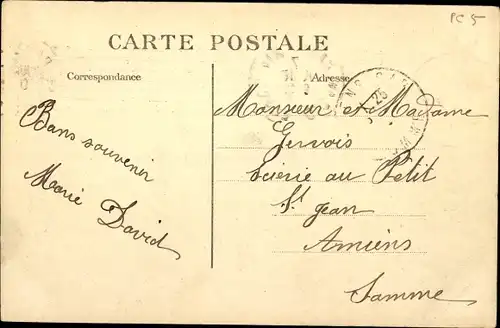 PC 5
CARTE POSTALE
Correspondance
Adresse
Bons souvenir
Marie David
Monsieur et Madame
Gervois
Scierie au Petit
St Jean
Amiens
Somme
25